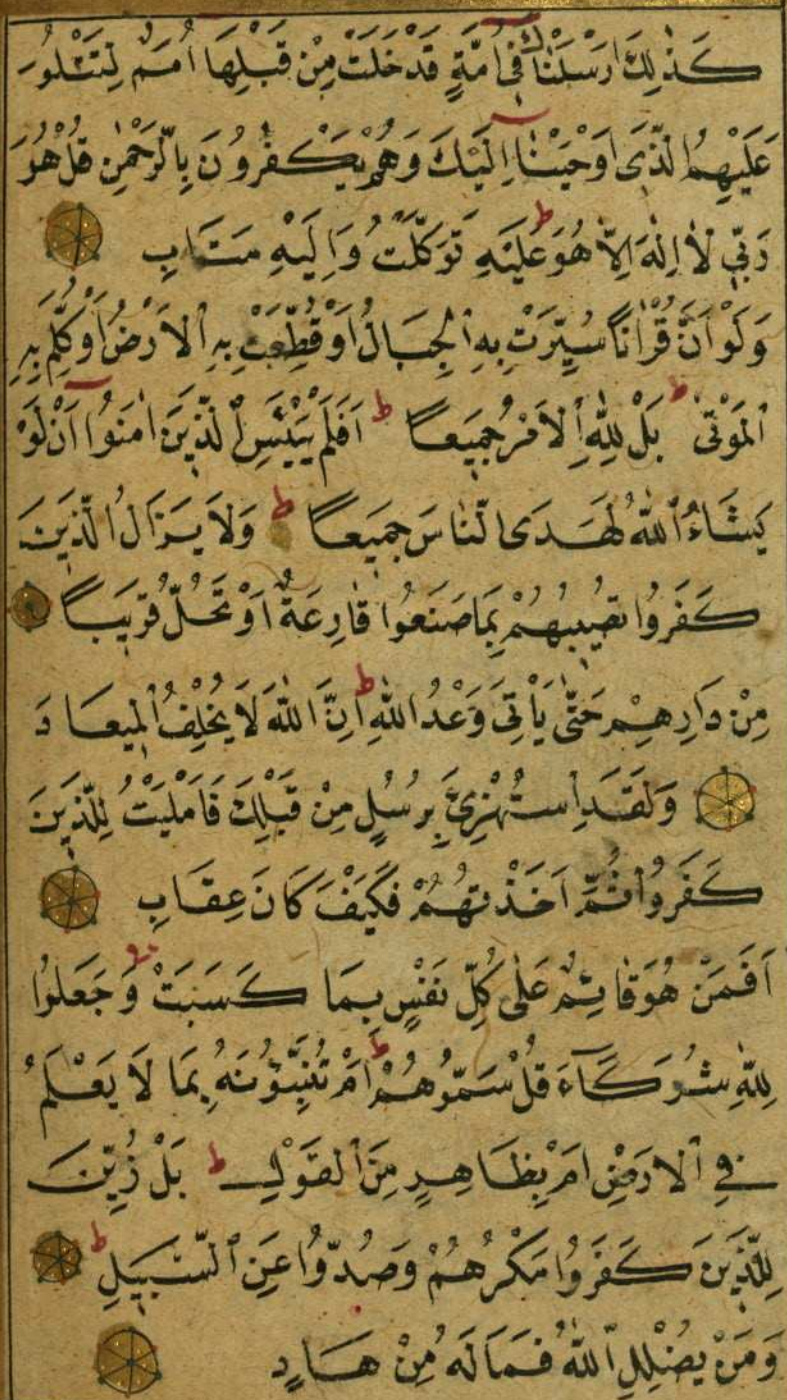 كَذٰلِكَ اَرْسَلْنَاكَ فٖى اُمَّةٍ قَدْ خَلَتْ مِنْ قَبْلِهَا اُمَمٌ لِتَتْلُوَ
عَلَيْهِمُ الَّذٖى اَوْحَيْنَا اِلَيْكَ وَهُمْ يَكْفُرُونَ بِالرَّحْمٰنِ قُلْ هُوَ
رَبّٖى لَا اِلٰهَ اِلَّا هُوَ ط عَلَيْهِ تَوَكَّلْتُ وَاِلَيْهِ مَتَابِ
وَلَوْ اَنَّ قُرْاٰنًا سُيِّرَتْ بِهِ الْجِبَالُ اَوْ قُطِّعَتْ بِهِ الْاَرْضُ اَوْ كُلِّمَ بِهِ
الْمَوْتٰى ط بَلْ لِلّٰهِ الْاَمْرُ جَمٖيعًا ط اَفَلَمْ يَيْئَسِ الَّذٖينَ اٰمَنُوا اَنْ لَوْ
يَشَاءُ اللّٰهُ لَهَدَى النَّاسَ جَمٖيعًا ط وَلَا يَزَالُ الَّذٖينَ
كَفَرُوا تُصٖيبُهُمْ بِمَا صَنَعُوا قَارِعَةٌ اَوْ تَحُلُّ قَرٖيبًا
مِنْ دَارِهِمْ حَتّٰى يَأْتِىَ وَعْدُ اللّٰهِ ط اِنَّ اللّٰهَ لَا يُخْلِفُ الْمٖيعَادَ
وَلَقَدِ اسْتُهْزِئَ بِرُسُلٍ مِنْ قَبْلِكَ فَاَمْلَيْتُ لِلَّذٖينَ
كَفَرُوا ثُمَّ اَخَذْتُهُمْ فَكَيْفَ كَانَ عِقَابِ
اَفَمَنْ هُوَ قَائِمٌ عَلٰى كُلِّ نَفْسٍ بِمَا كَسَبَتْ وَجَعَلُوا
لِلّٰهِ شُرَكَآءَ قُلْ سَمُّوهُمْ ط اَمْ تُنَبِّؤُنَهُ بِمَا لَا يَعْلَمُ
فِى الْاَرْضِ اَمْ بِظَاهِرٍ مِنَ الْقَوْلِ ط بَلْ زُيِّنَ
لِلَّذٖينَ كَفَرُوا مَكْرُهُمْ وَصُدُّوا عَنِ السَّبٖيلِ ط
وَمَنْ يُضْلِلِ اللّٰهُ فَمَا لَهُ مِنْ هَادٍ